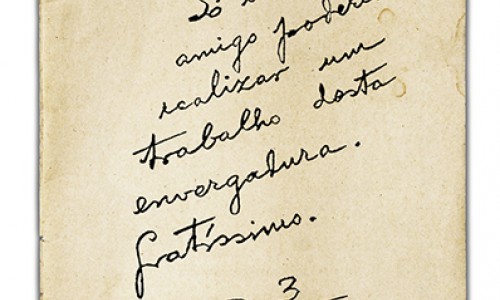 Só
amigo poderia
realizar um
trabalho desta
envergadura.
Gratíssimo.
3